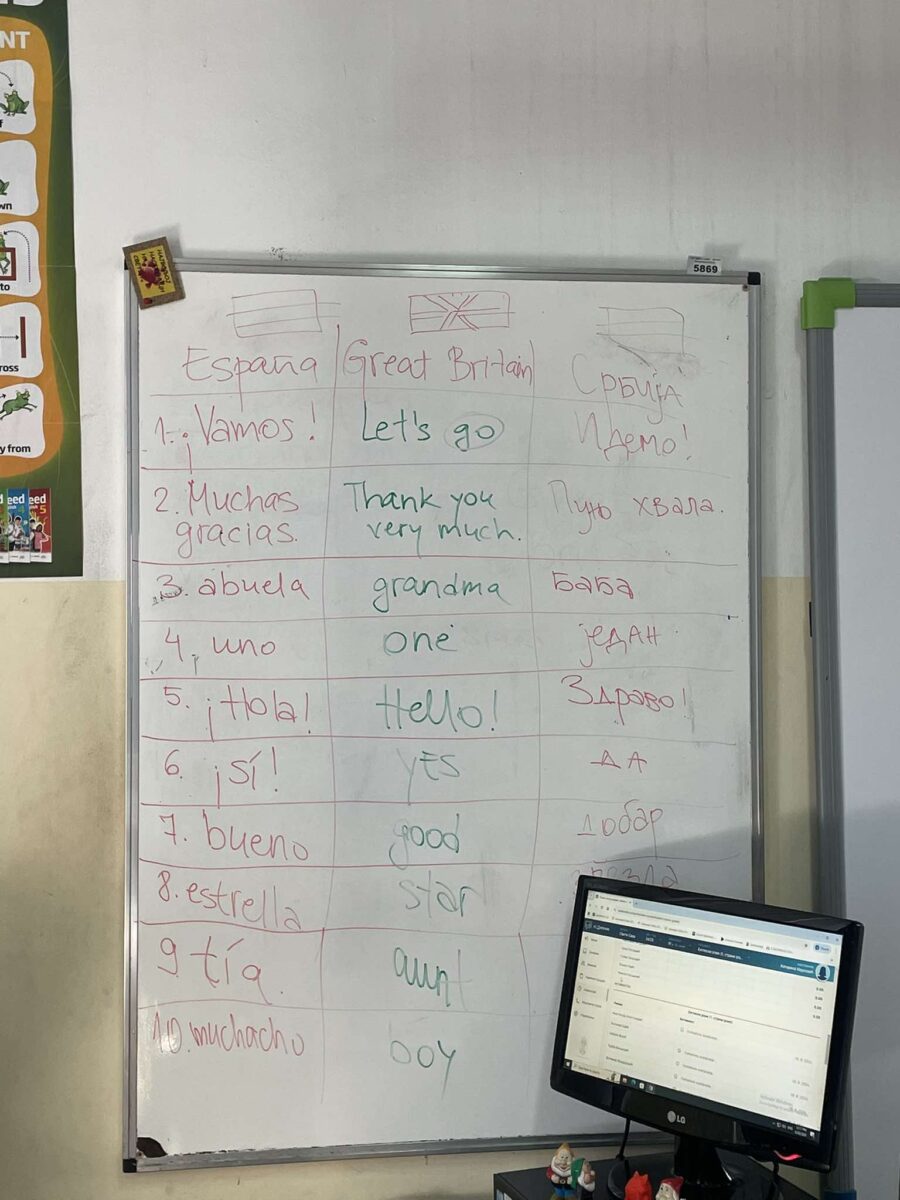 NT
f
wn
to
ross
y from
eed
eed
5
5869
España Great Britain Србија
1. ¡Vamos! Let's go Идемо!
2. Muchas Thank you Пуно хвала.
gracias. very much.
3. abuela grandma баба
4. uno one један
5. ¡Hola! Hello! Здраво!
6. ¡sí! yes да
7. bueno good добар
8. estrella star
9 tía aunt
10. muchacho boy
LG